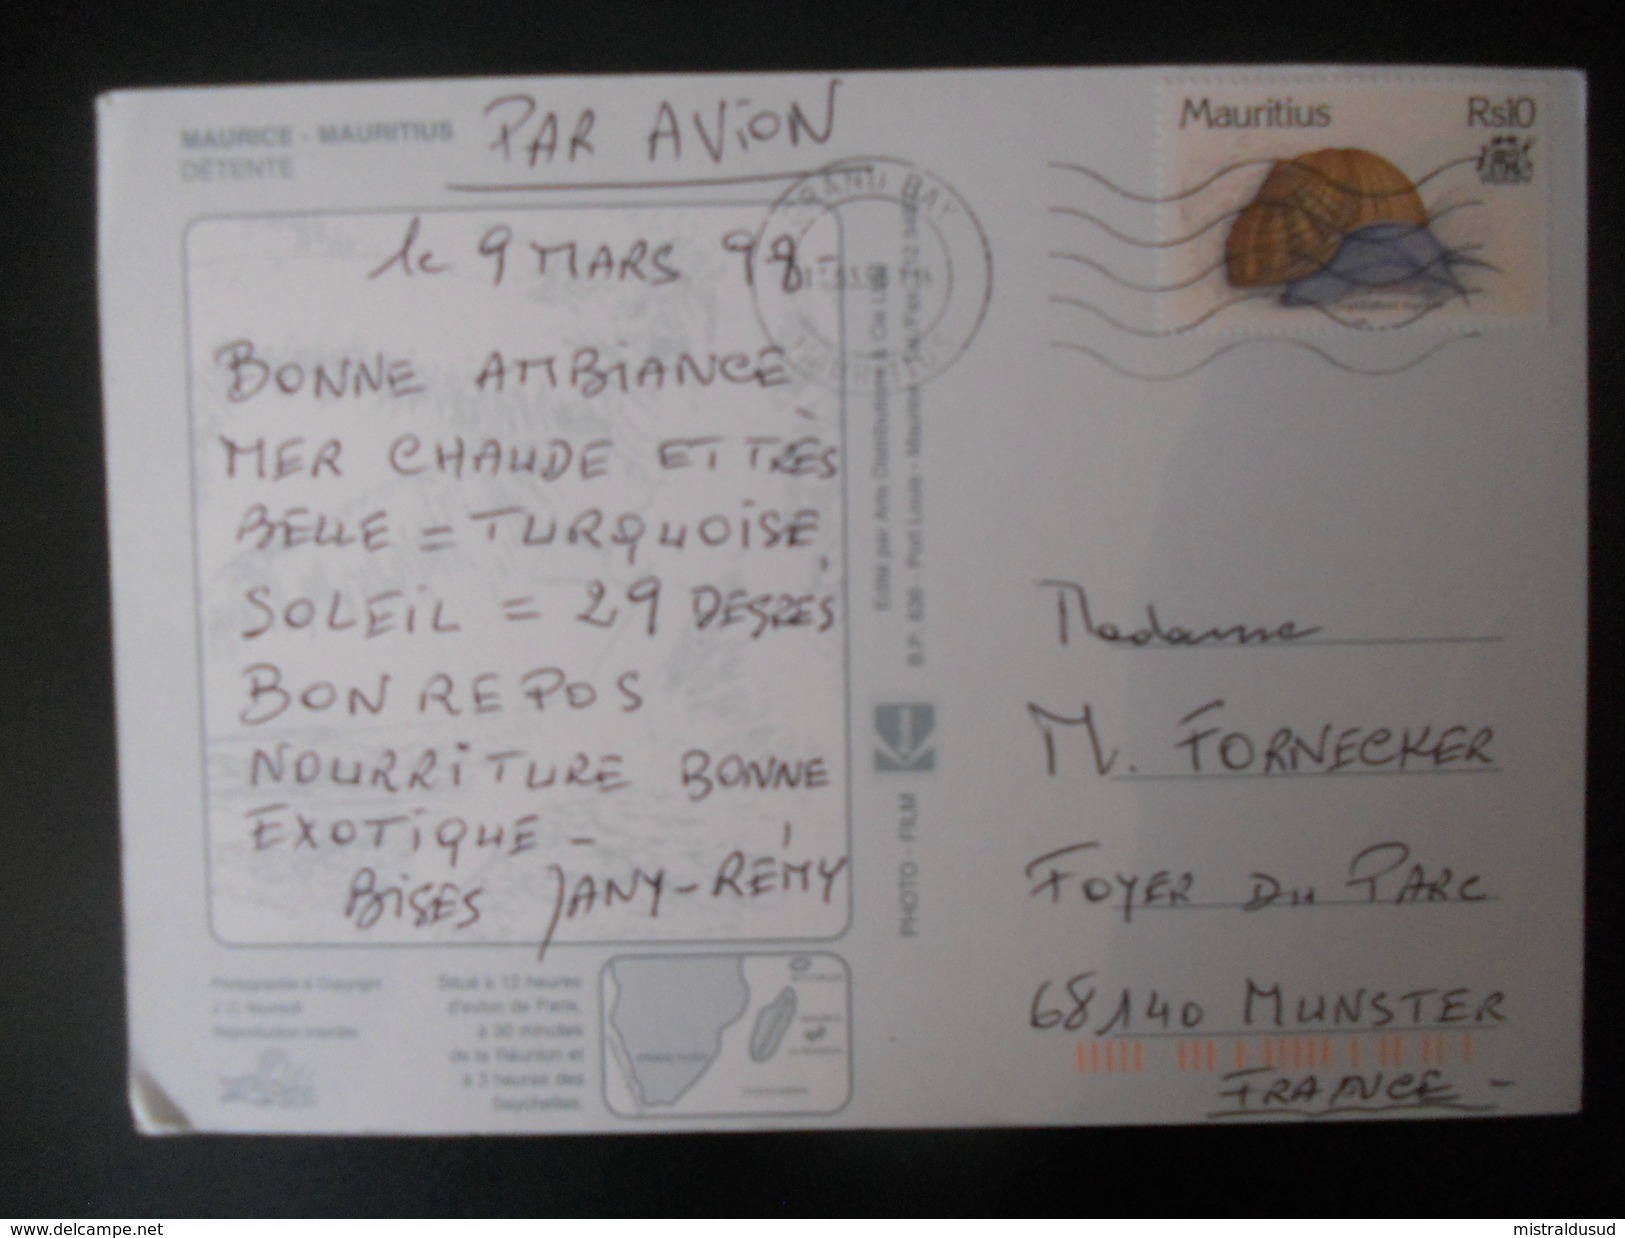 MAURICE - MAURITIUS
DÉTENTE
PAR AVION
le 9 MARS 98-
BONNE AMBIANCE
MER CHAUDE ET TRÈS
BELLE = TURQUOISE
SOLEIL = 29 DEGRÉS
BON REPOS
NOURRITURE BONNE
EXOTIQUE -
BISES JANY-RÉMY
Photographie & Copyright
Situé à 12 heures
d'avion de Paris,
à 30 minutes
de la Réunion et
à 3 heures des
Seychelles.
Edité par Arts Distributions & Cie Ltée
B.P. 630 - Port Louis - Maurice - Tel/Fax: 212
PHOTO - FILM
GRAND BAY
Mauritius Rs10
Madame
M. FORNECKER
FOYER DU PARC
68140 MUNSTER
FRANCE -
www.delcampe.net
mistraldusud